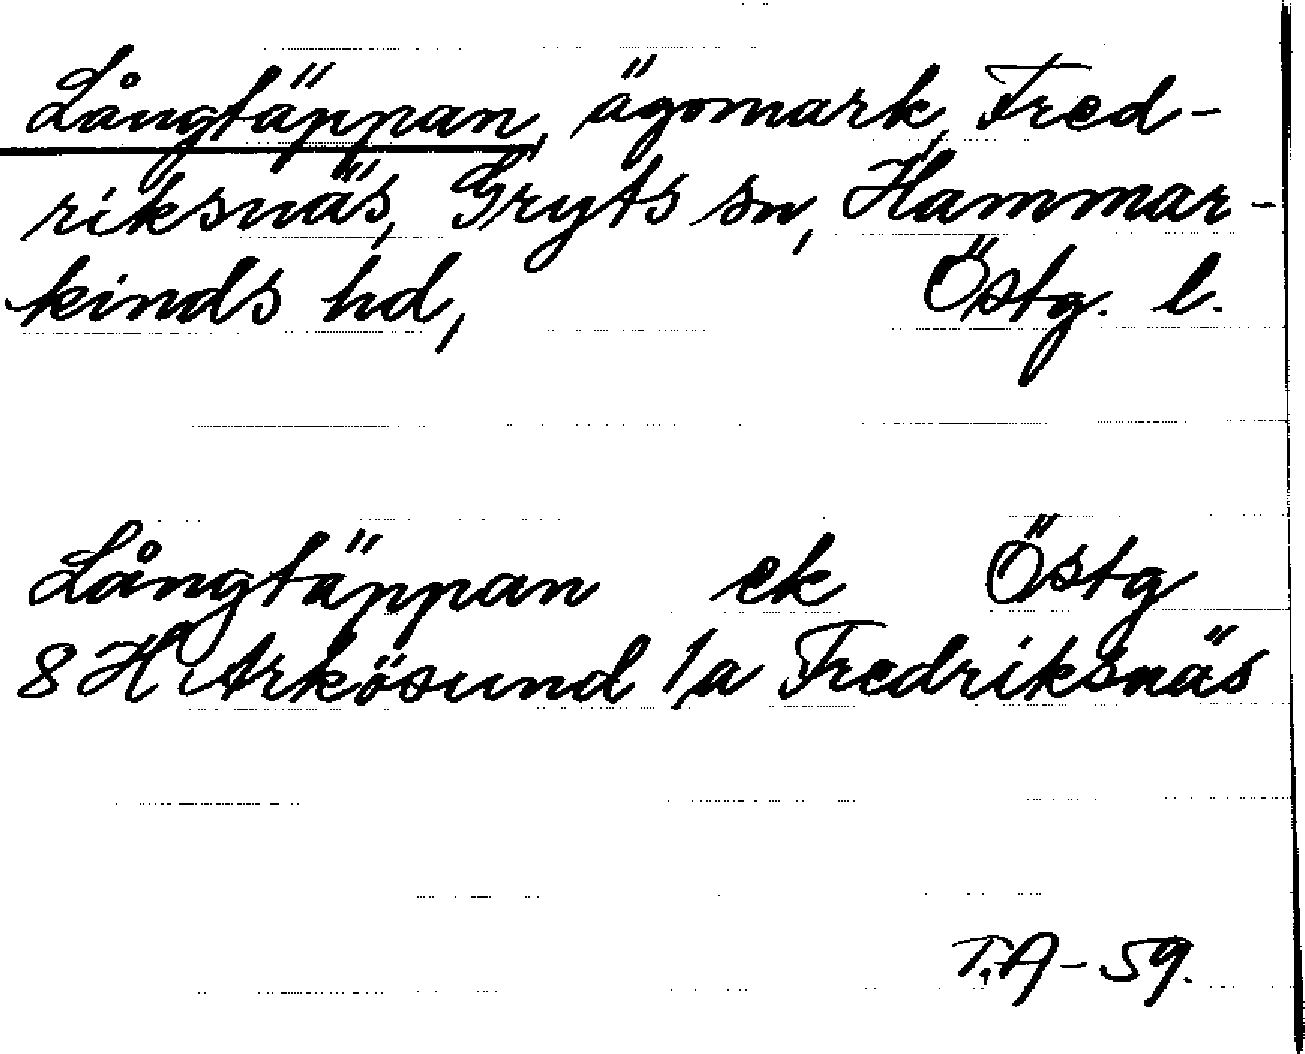 Långtäppan, ägomark, Fred-
riksnäs, Gryts sn, Hammar-
kinds hd, Östg. l.
Långtäppan ek Östg
8 H Arkösund 1a Fredriksnäs
T.A-59.